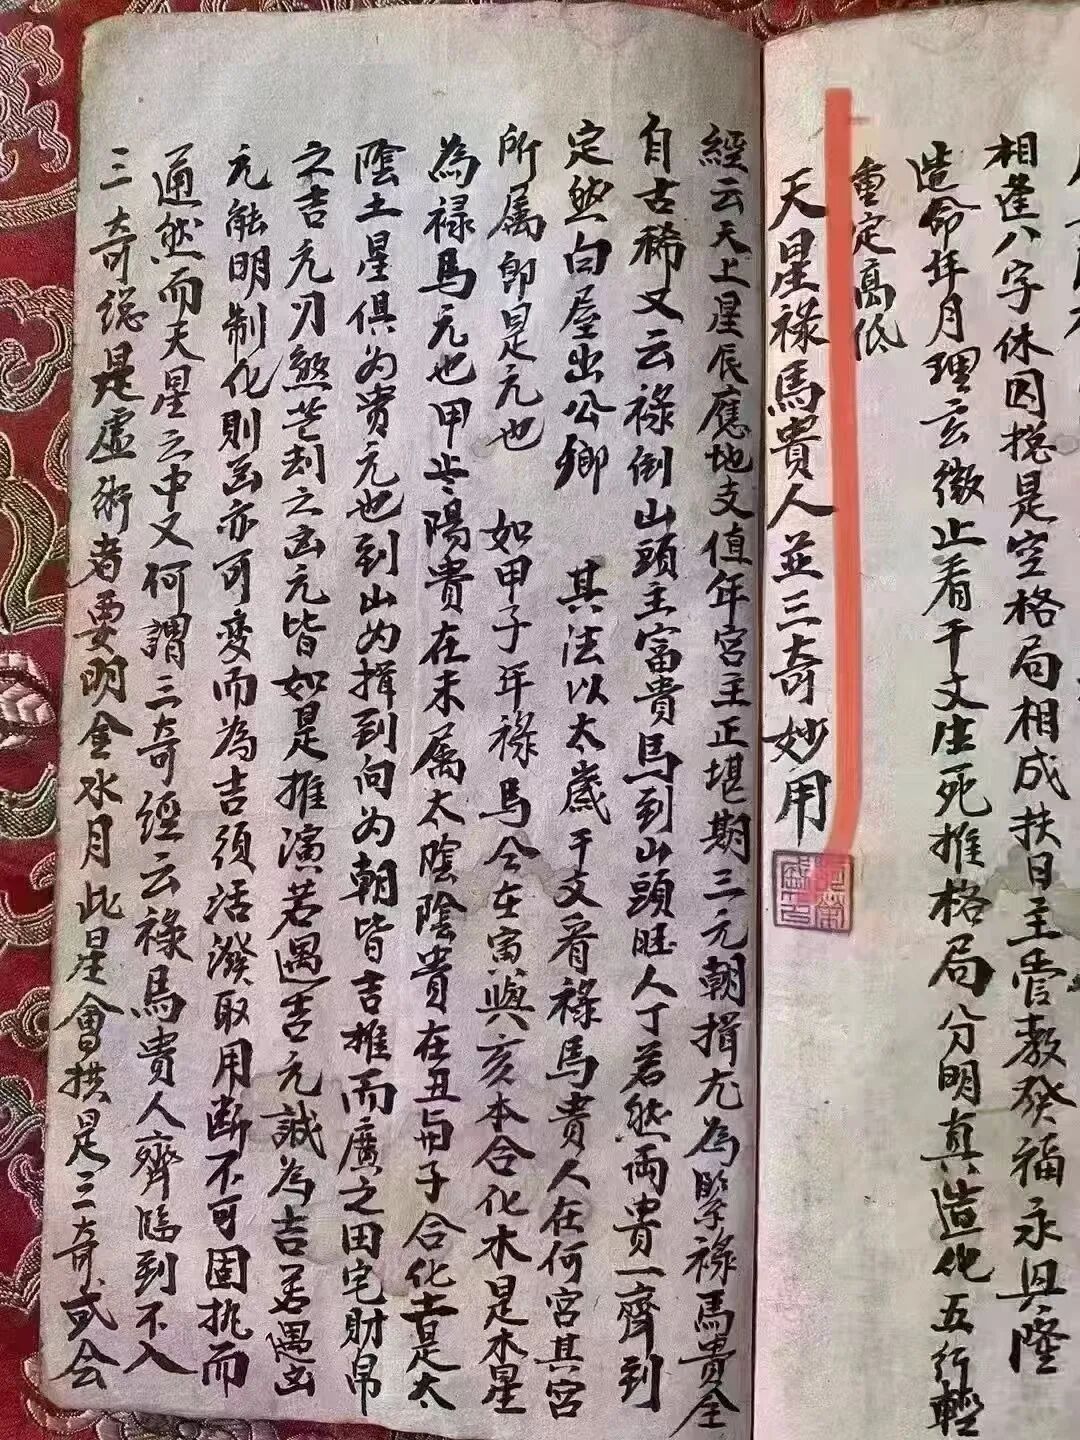 相逢八字休囚揔是空格局相成扶日主官教發福永興隆
造命年月理玄微止看干支生死推格局分明真造化五行輕
重定高低
天星祿馬貴人並三奇妙用
經云天上星辰應地支值年宮主正堪期三元朝揖尤為緊祿馬貴全
自古稀又云祿倒山頭主富貴馬到山頭旺人丁若然兩貴一齊到
定然白屋出公卿 其法以太歲干支看祿馬貴人在何宮其宮
所属即是元也 如甲子年祿馬全在寅與亥本合化木是木星
為禄馬元也甲此陽貴在未属太陰陰貴在丑与子合化土是太
陰土星俱为貴元也到山为揖到向为朝皆吉推而廣之田宅財帛
之吉元刃煞芒刦之凶元皆如是推演若遇吉元誠為吉若遇凶
元能明制化則凶亦可变而為吉須活潑取用断不可固执而
通然而天星之中又何謂三奇經云祿馬貴人齊臨到不入
三奇総是虚術者要明金水月此星會拱是三奇或会